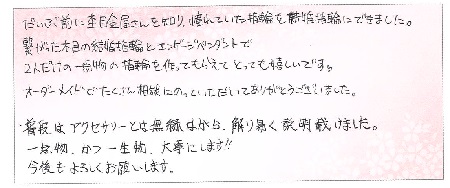 だいぶ前に杢目金屋さんを知り、憧れていた指輪を結婚指輪にできました。
繋がった木目の結婚指輪とエンゲージペンダントで
2人だけの一点物の指輪を作ってもらえてとっても嬉しいです。
オーダーメイドでたくさん相談にのっていただいてありがとうございました。
普段はアクセサリーとは無縁ながら、解り易く説明戴けました。
一点物、かつ一生物、大事にします!!
今後もよろしくお願いします。